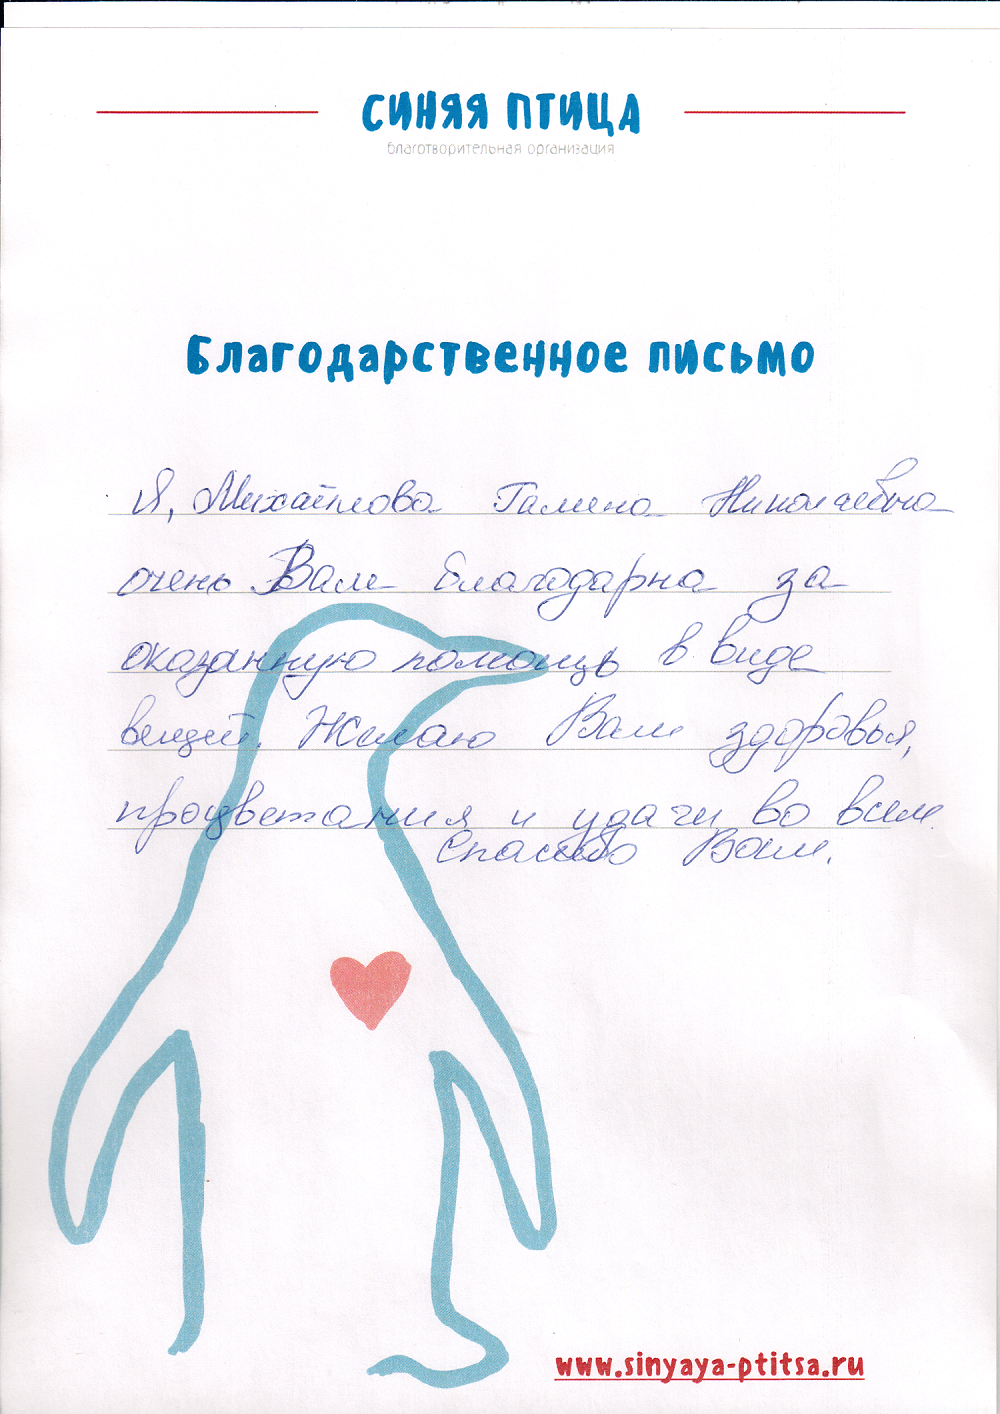 СИНЯЯ ПТИЦА
благотворительная организация
Благодарственное письмо
Я, Михайлова Галина Николаевна
очень Вам благодарна за
оказанную помощь в виде
вещей. Желаю Вам здоровья,
процветания и удачи во всем.
Спасибо Вам.
www.sinyaya-ptitsa.ru